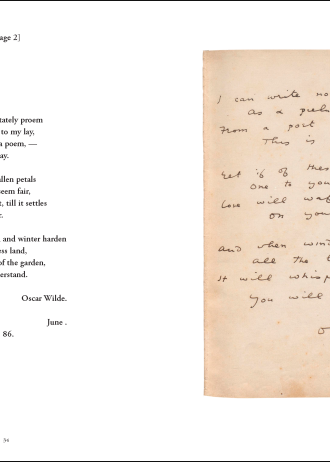 age 2]
tately proem
to my lay,
a poem, —
ay.
llen petals
seem fair,
t, till it settles
r.
and winter harden
ess land,
of the garden,
erstand.
Oscar Wilde.
June .
86.
54
I can write no
as a prel
From a poet
This is
Yet if of thes
One to you
Love will waf
on you
And when wint
all the l
It will whisp
You will
O